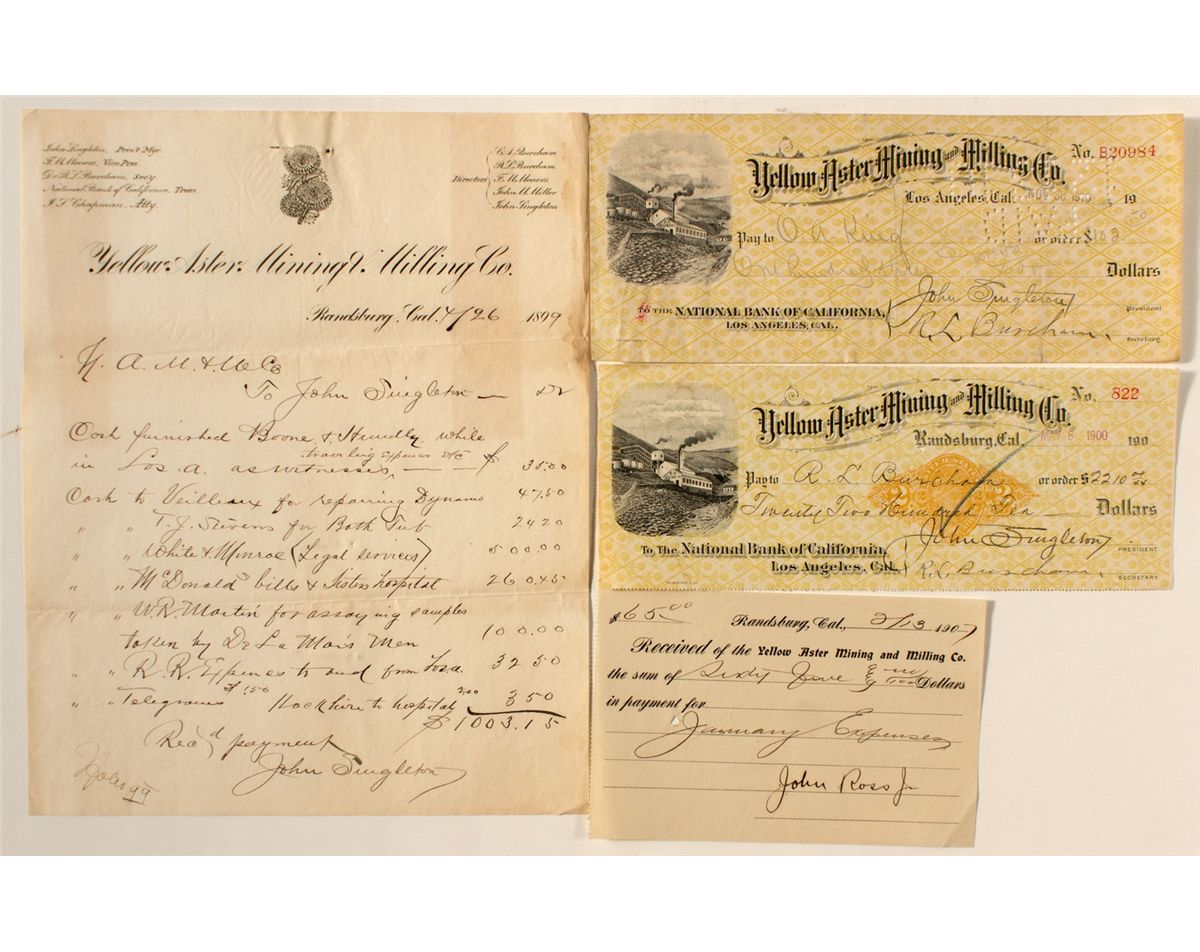 John Singleton, Pres & Mgr.
F. M. Mooers, Vice Pres
Dr. R. L. Burcham, Secy.
National Bank of California, Treas
J. S. Chapman, Atty.
Directors
C. A. Burcham
R. L. Burcham
F. M. Mooers
John M. Miller
John Singleton
Yellow Aster Mining & Milling Co.
Randsburg, Cal. 4/26 1899
A. M. & M Co
To John Singleton — Dr
Cash furnished Boone & Hundly while
traveling expenses etc
in Los. a. as witnesses — $ 35.00
Cash to Veilleux for repairing Dynamo 47.50
" " T. J. Stevens for Bath Tub 24 20
" " White & Monroe (Legal services) 500.00
" " McDonald bills & Sisters hospital 260.45
" " W. R. Martin for assaying samples
taken by De La Mar's Men 100.00
" " R. R. Expenses to and from Los a. 32 50
" " Telegrams $1.50 Hack hire to hospital 2.00 3 50
$1003.15
Recd payment
John Singleton
99
Yellow Aster Mining and Milling Co.
No. B20984
Los Angeles, Cal. 19
Pay to O. A. King or order $102.00
One hundred
Dollars
To the NATIONAL BANK OF CALIFORNIA,
LOS ANGELES, CAL.
John Singleton
President
R L Burcham,
Secretary.
Yellow Aster Mining and Milling Co.
No. 822
Randsburg, Cal. MAY 8 1900 190
Pay to R. L Burcham or order $2210
2 2
Twenty Two Hundred Ten — Dollars
To The National Bank of California,
Los Angeles, Cal.
John Singleton,
PRESIDENT.
R. L. Burcham,
SECRETARY.
$65.00
Randsburg, Cal., 2/13 1907
Received of the Yellow Aster Mining and Milling Co.
the sum of Sixty Five & no/100 Dollars
in payment for
January Expenses
John Ross Jr